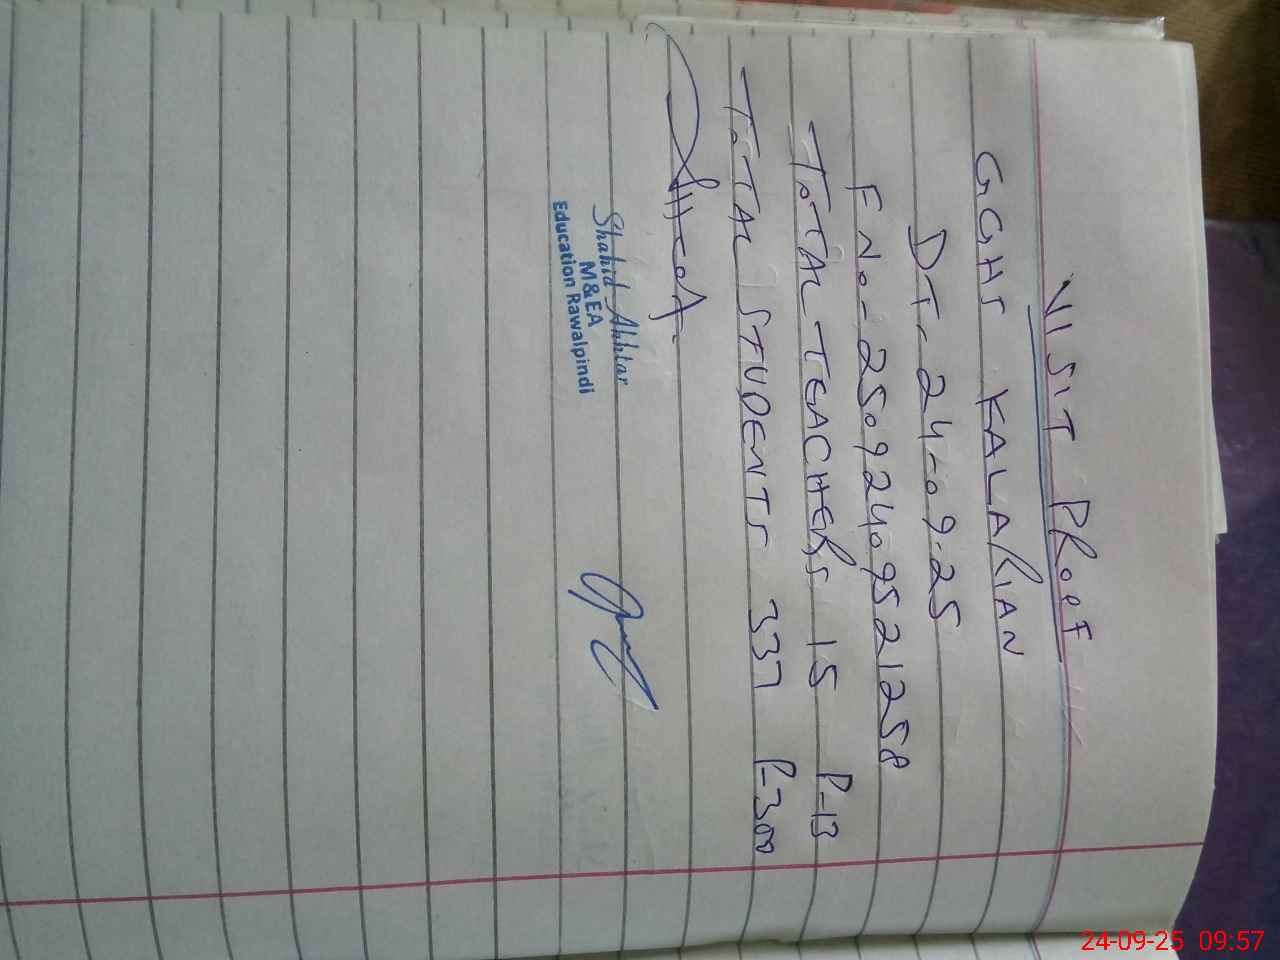 VISIT PROOF
GGHS KALARIAN
DT. 24-09-25
F No- 25092409521258
ToTTAL TEACHERS 15 P-13
ToTTAL STUDENTS 337 P-300
Shahid Akhtar
M&EA
Education Rawalpindi
24-09-25 09:57